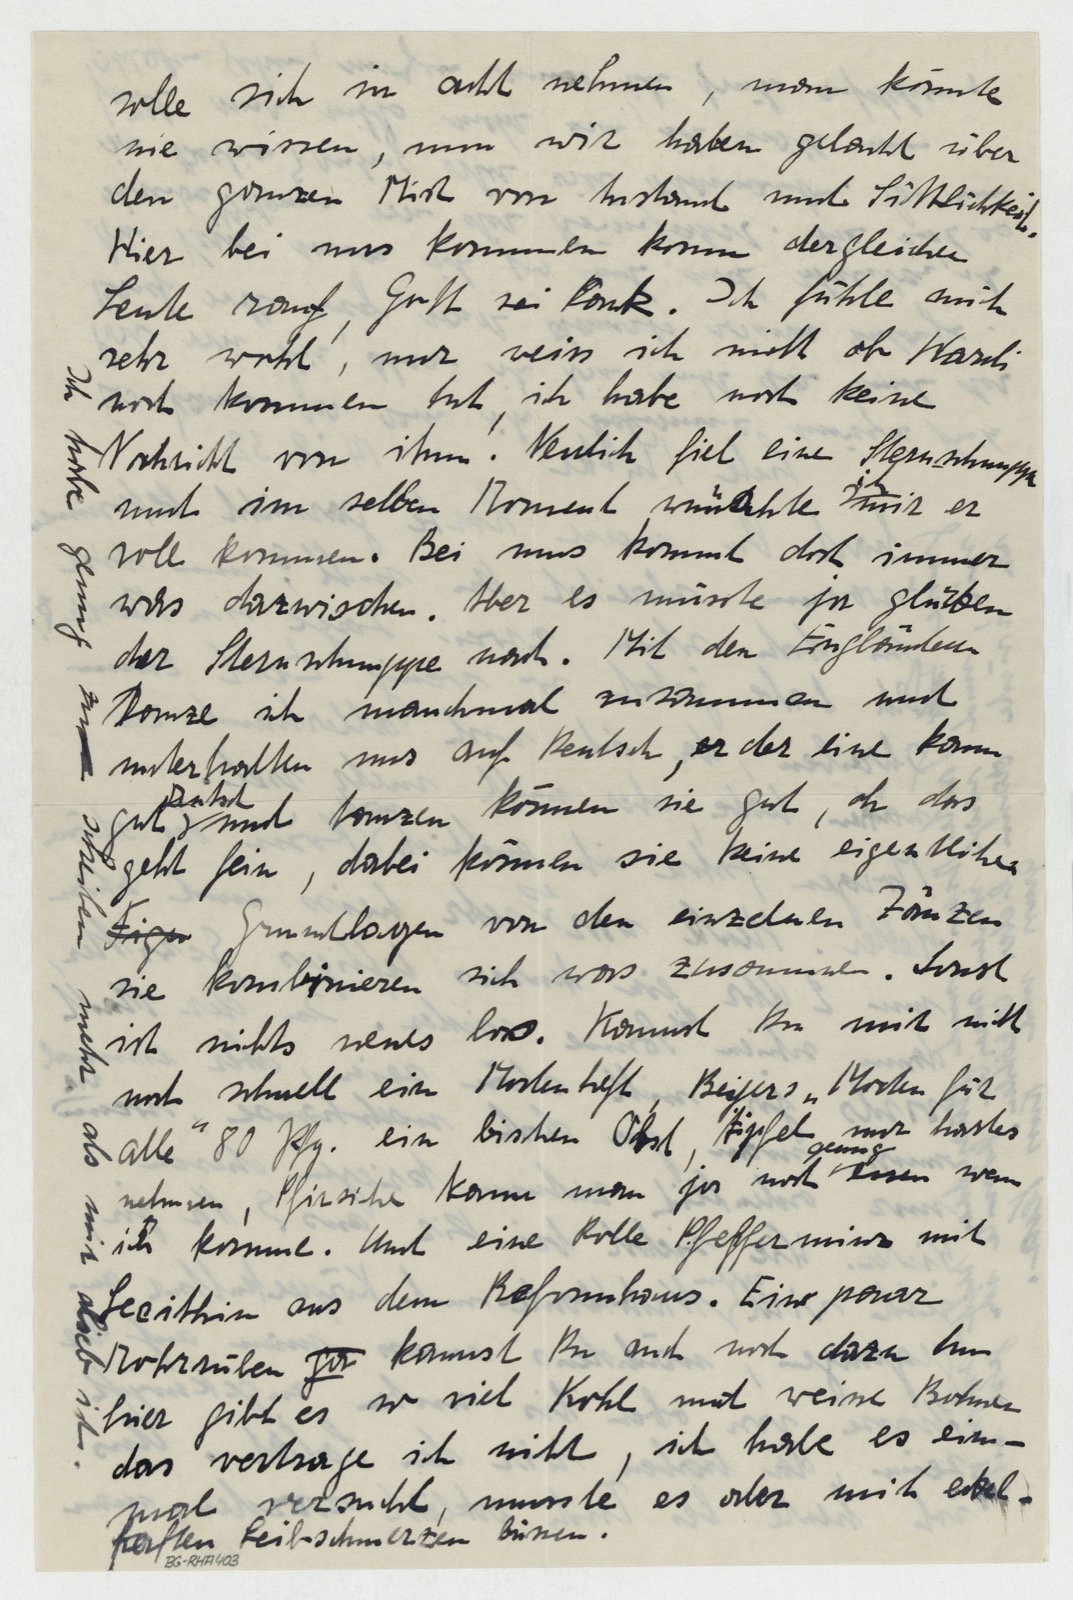 solle sich in acht nehmen, man könnte
nie wissen, nun wir haben gelacht über
den ganzen Mist von Anstand und Sittlichkeit.
Hier bei uns kommen kaum dergleichen
Leute rauf, Gott sei Dank. Ich fühle mich
sehr wohl, nur weiss ich nicht ob
noch kommen tut, ich habe noch keine
Nachricht von ihm. Neulich fiel eine Sternschnuppe
und im selben Moment wünschte ich mir er
soll kommen. Bei uns kommt doch immer
was dazwischen. Aber es müsste ja glücken
der Sternschnuppe nach. Mit den Engländern
tanze ich manchmal zusammen und
unterhalten uns auf Deutsch, er der eine kann
gut Deutsch und tanzen können sie gut, oh das
geht fein, dabei können sie keine eigentlichen
Figu Grundlagen von den einzelnen Tänzen
sie kombinieren sich was zusammen. Sonst
ist nichts neues los. Kannst Du mir nicht
noch schnell ein Modenheft, Beyers „Moden für
alle“ 80 Pfg. ein bischen Obst, Äpfel nur hartes
nehmen, Pfirsiche kann man ja noch genug essen wenn
ich komme. Und eine Rolle Pfefferminz mit
Lecithin aus dem Reformhaus. Ein paar
Mohrrüben ja kannst Du auch noch dazu tun
hier gibt es so viel Kohl und weisse Bohnen
das vertrage ich nicht, ich habe es ein-
mal versucht, musste es aber mit ekel-
haften Leibschmerzen büssen.
Ich habe genug zum schreiben mehr als mir lieb ist.
BG-RHA403